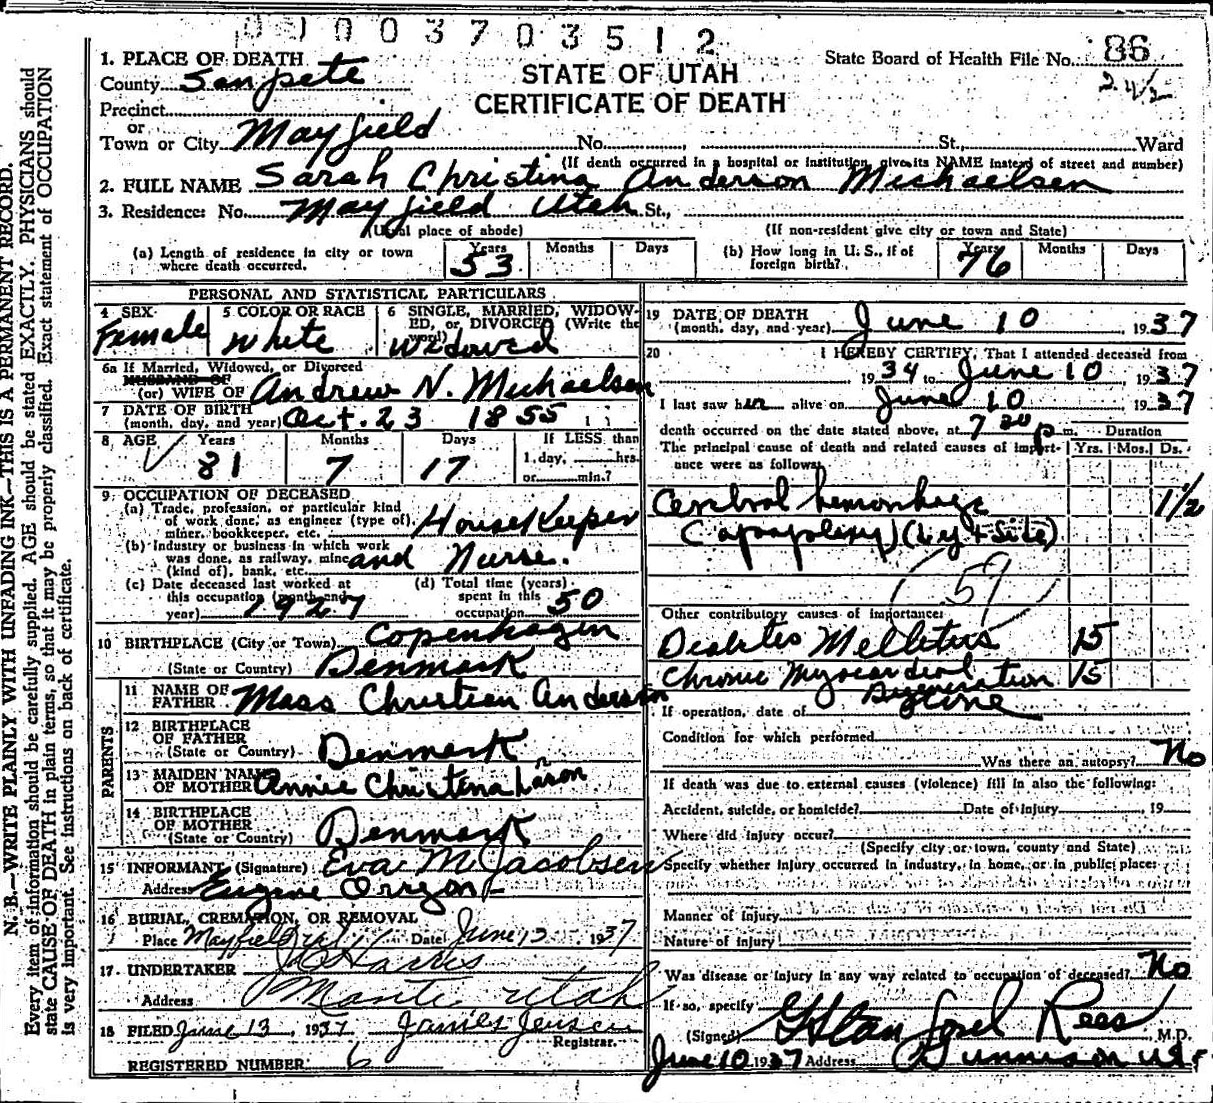 01003703512
1. PLACE OF DEATH
County Sanpete
Precinct
or
Town or City Mayfield No. St., Ward
STATE OF UTAH
CERTIFICATE OF DEATH
State Board of Health File No. 86
24 1/2
(If death occurred in a hospital or institution, give its NAME instead of street and number)
2. FULL NAME Sarah Christina Anderson Michaelsen
3. Residence: No. Mayfield Utah St.,
(Usual place of abode) (If non-resident give city or town and State)
(a) Length of residence in city or town where death occurred. Years 53 Months Days
(b) How long in U. S., if of foreign birth? Years 76 Months Days
PERSONAL AND STATISTICAL PARTICULARS
4 SEX Female
5 COLOR OR RACE White
6 SINGLE, MARRIED, WIDOWED, or DIVORCED (Write the word) Widowed
6a If Married, Widowed, or Divorced
HUSBAND OF
(or) WIFE OF Andrew N. Michaelsen
7 DATE OF BIRTH
(month, day, and year) Oct. 23 1855
8 AGE Years 81 Months 7 Days 17 If LESS than
1 day, hrs.
or min.?
9 OCCUPATION OF DECEASED
(a) Trade, profession, or particular kind
of work done, as engineer (type of),
miner, bookkeeper, etc. House Keeper
(b) Industry or business in which work
was done, as railway, mine and Nurse.
(kind of), bank, etc.
(c) Date deceased last worked at
this occupation (month and
year) 1927
(d) Total time (years)
spent in this
occupation 50
10 BIRTHPLACE (City or Town) Copenhagen
(State or Country) Denmark
PARENTS
11 NAME OF
FATHER Mass Christian Anderson
12 BIRTHPLACE
OF FATHER
(State or Country) Denmark
13 MAIDEN NAME
OF MOTHER Annie Christina Larson
14 BIRTHPLACE
OF MOTHER
(State or Country) Denmark
15 INFORMANT (Signature) Eva M Jacobsen
Address Eugene Oregon
16 BURIAL, CREMATION, OR REMOVAL
Place Mayfield Ut Date June 12 1937
17 UNDERTAKER Harris
Address Manti Utah
18 FILED June 13, 1937 James Jensen
Registrar.
REGISTERED NUMBER 6
19 DATE OF DEATH
(month, day, and year) June 10 1937
20 I HEREBY CERTIFY, That I attended deceased from
1934 to June 10 1937
I last saw her alive on June 10 1937
death occurred on the date stated above, at 7 30 p m. Duration
The principal cause of death and related causes of importance were as follows: Yrs. Mos. Ds.
Cerebral hemorrhage 1 1/2
(apoplexy) (Left Side)
59
Other contributory causes of importance:
Diabetes Mellitus 15
Chronic Myocardial 15
Degeneration
If operation, date of none
Condition for which performed
Was there an autopsy? No
If death was due to external causes (violence) fill in also the following:
Accident, suicide, or homicide? Date of injury 19
Where did injury occur?
(Specify city or town, county and State)
Specify whether injury occurred in industry, in home, or in public place:
Manner of Injury
Nature of injury
Was disease or injury in any way related to occupation of deceased? No
If so, specify
(Signed) Rees M.D.
June 10 1937 Address Gunnison Ut
N. B.—WRITE PLAINLY WITH UNFADING INK—THIS IS A PERMANENT RECORD.
Every item of information should be carefully supplied. AGE should be stated EXACTLY. PHYSICIANS should
state CAUSE OF DEATH in plain terms, so that it may be properly classified. Exact statement of OCCUPATION
is very important. See instructions on back of certificate.